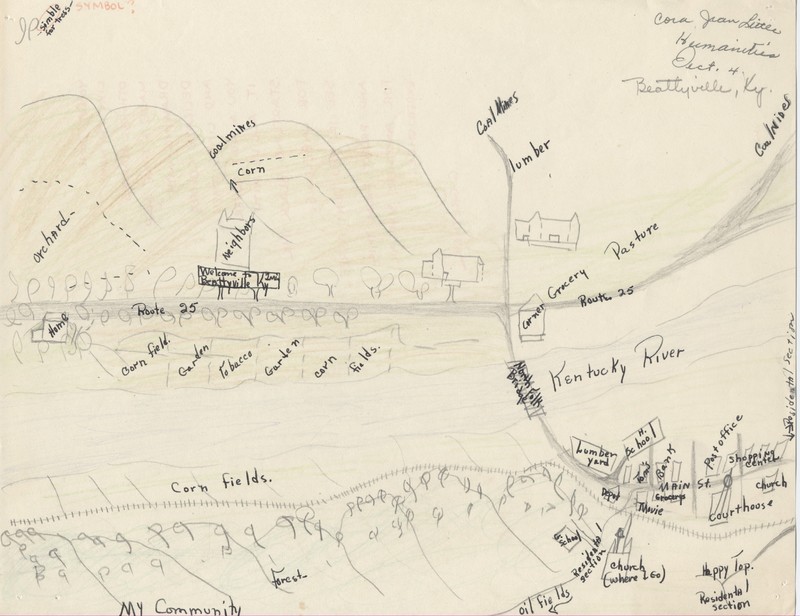 Simble
for trees
SYMBOL?
Cora Jean
Humanities
Sect. 4
Beattyville, Ky.
Coal Mines
lumber
Coal Mines
coalmines
corn
orchard
Neighbors
Welcome to
Beattyville Ky
Pasture
Grocery
Corner
Route 25
Route 25
Home
Corn field.
Garden
Tobacco
Garden
corn
fields.
Kentucky River
Residential section
Lumber
yard
H.
School
Bank
Post office
Shopping
center
Church
MAIN St.
Grocerys
Depot
Movie
Courthoose
Corn fields.
Gr.
School
Residential
section
church
(where I Go)
Happy Top.
Residental
section
Forest
oil fields
My Community